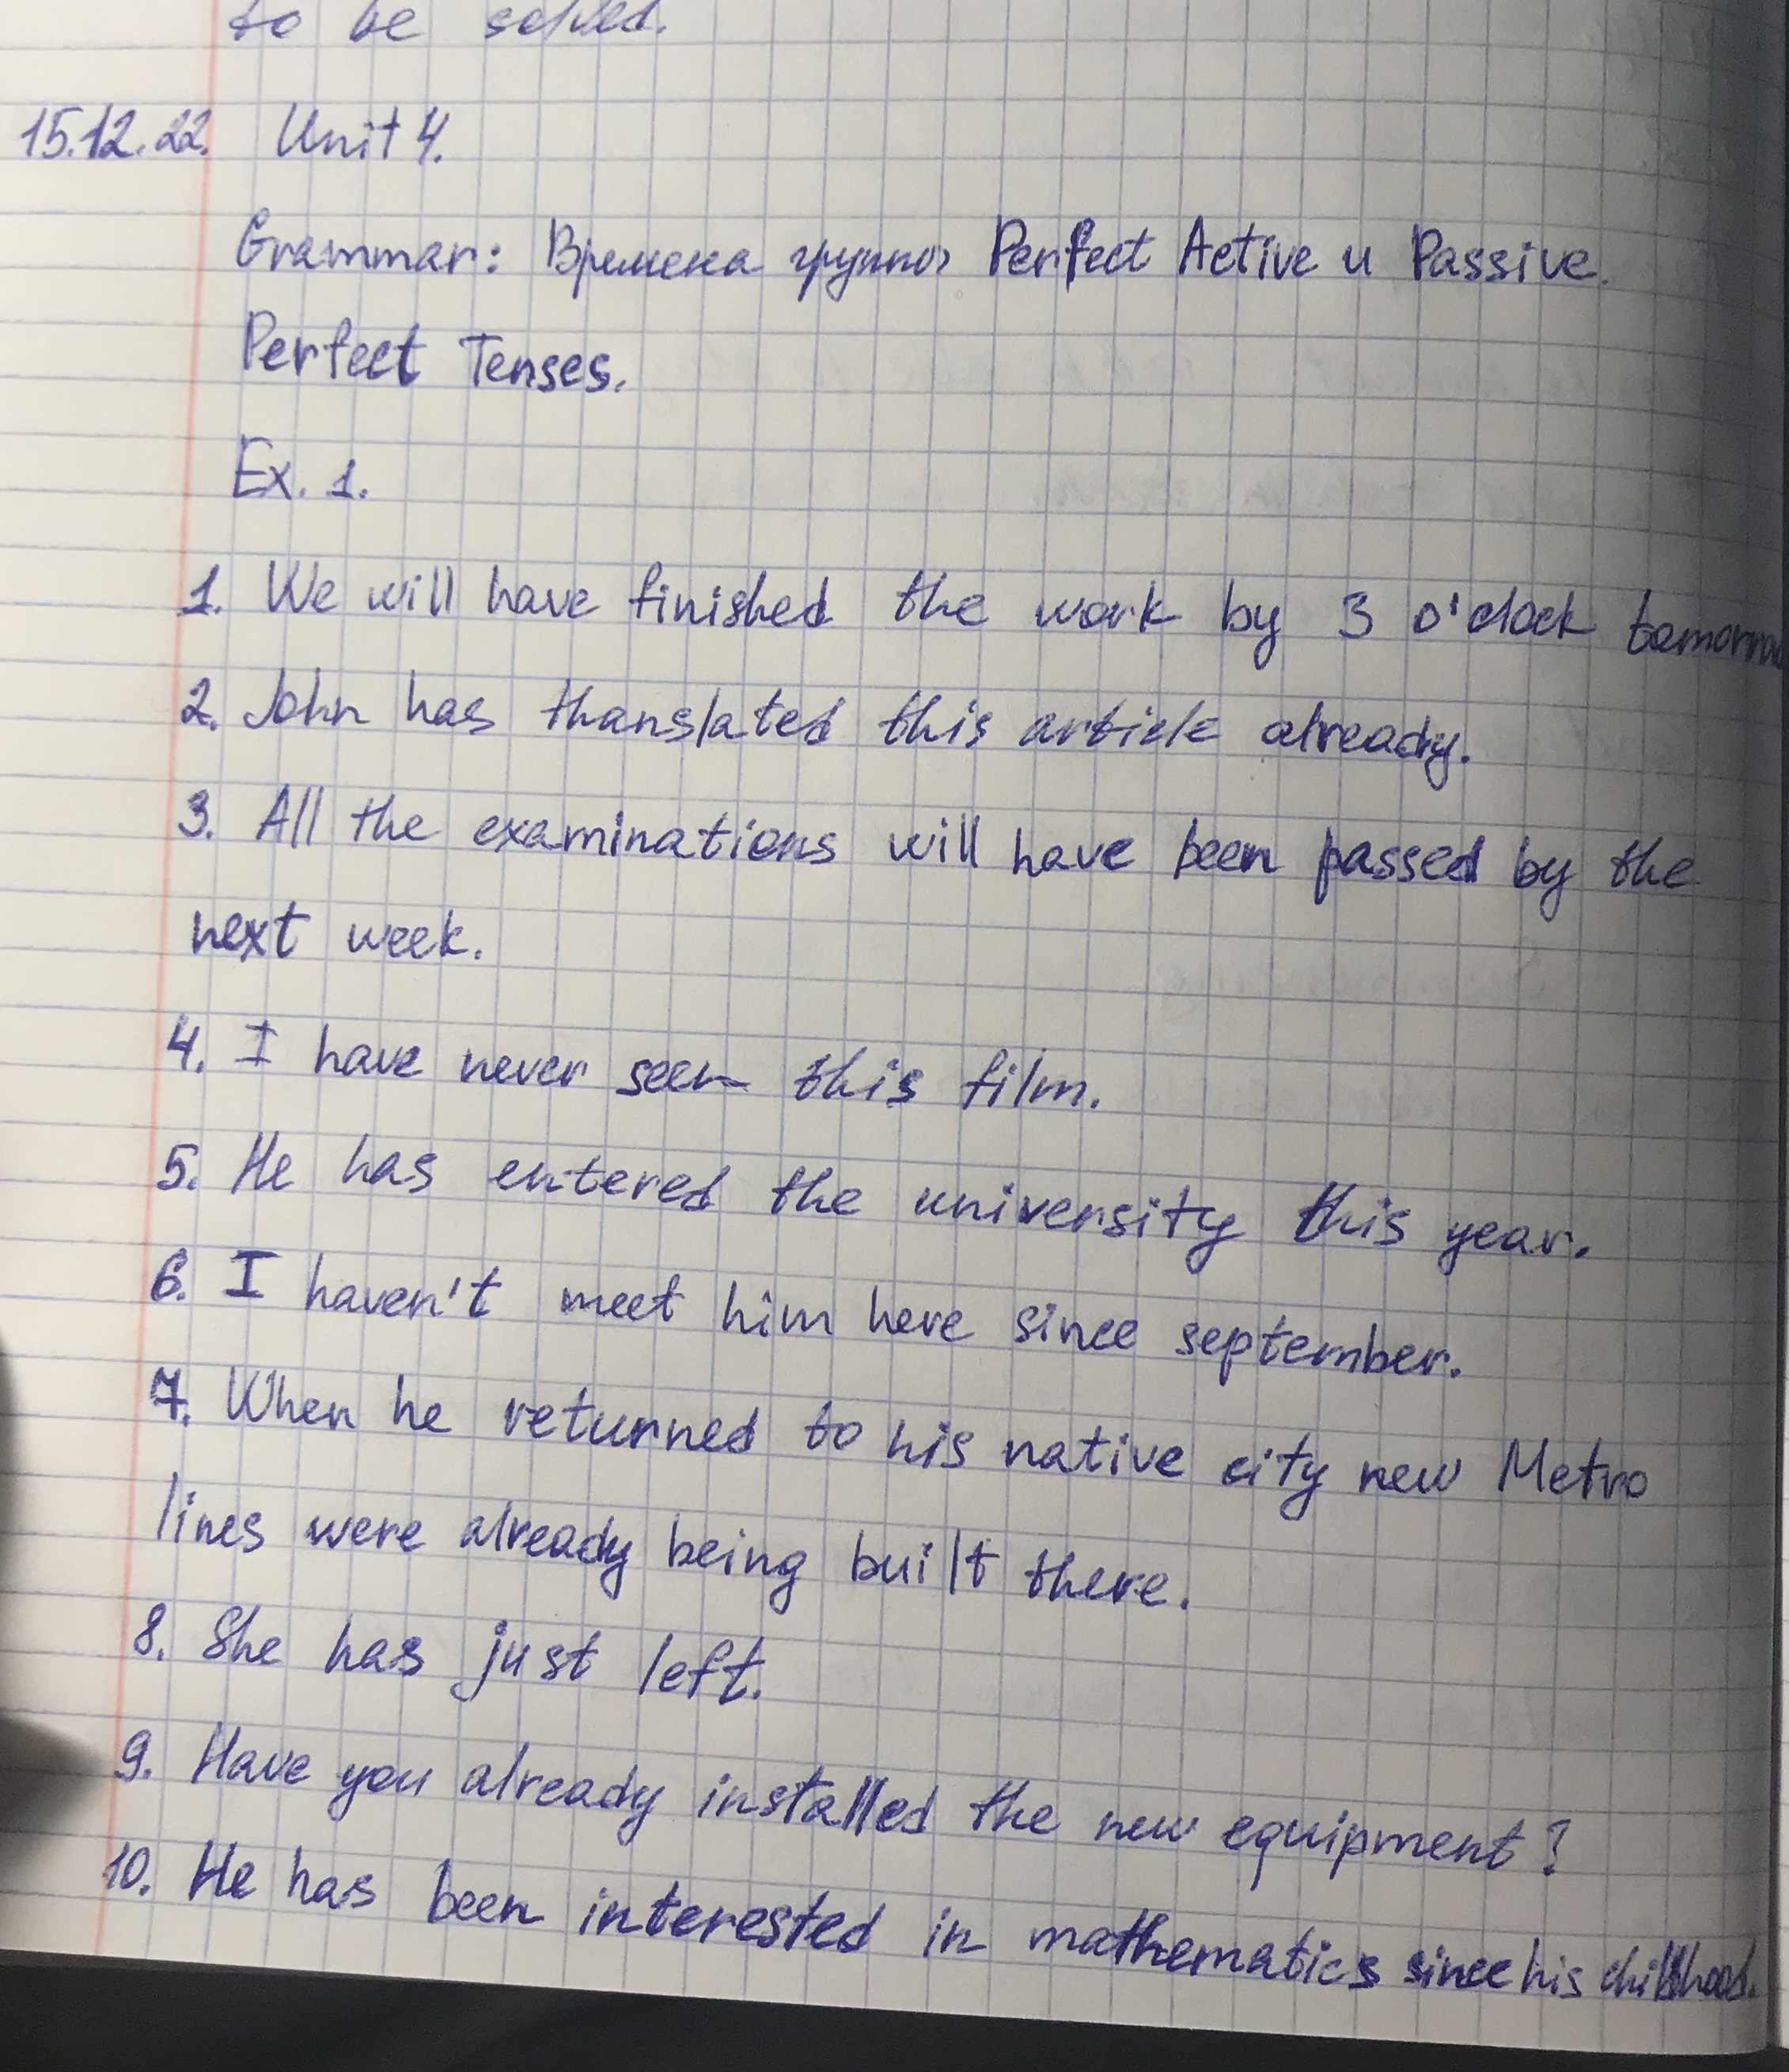 to be solved.
15.12.22. Unit 4.
Grammar: Времена группы Perfect Active и Passive.
Perfect Tenses.
Ex. 1.
1. We will have finished the work by 3 o'clock tomorrow
2. John has thanslated this article already.
3. All the examinations will have been passed by the
next week.
4. I have never seen this film.
5. He has entered the university this year.
6. I haven't meet him here since september.
7. When he returned to his native city new Metro
lines were already being built there.
8. She has just left.
9. Have you already installed the new equipment?
10. He has been interested in mathematics since his childhood.